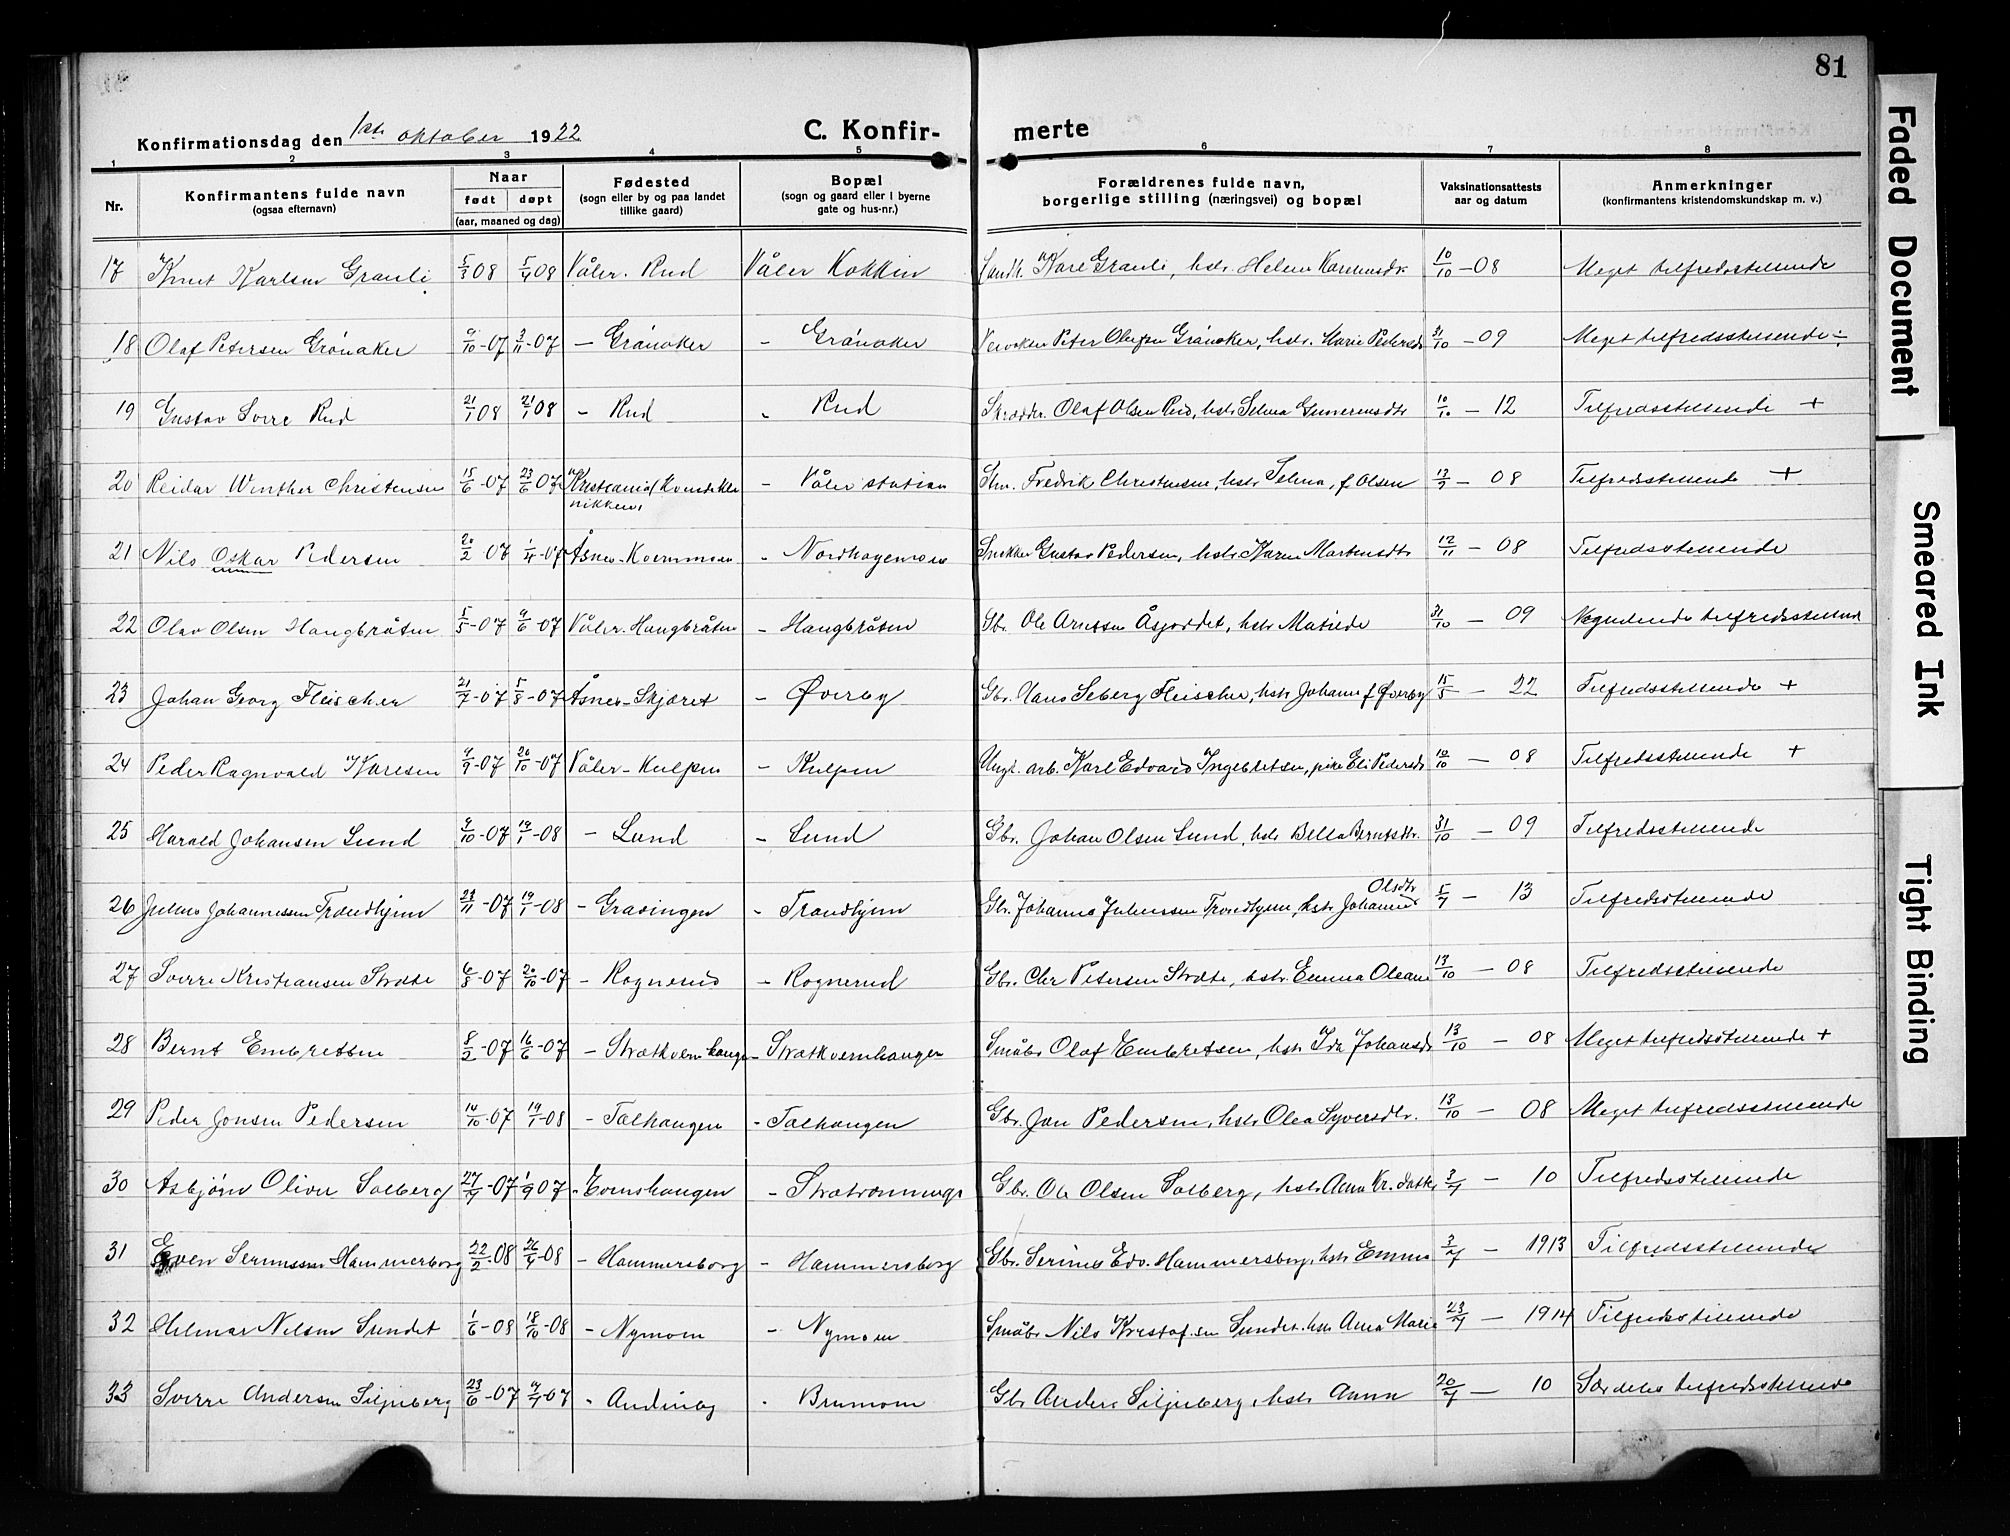 81
Konfirmationsdag den 1ste oktober 1922 C. Konfir- merte
1 2 3 4 5 6 7 8
Nr. Konfirmantens fulde navn (ogsaa efternavn) Naar født døpt (aar, maaned og dag) Fødested (sogn eller by og paa landet tillike gaard) Bopæl (sogn og gaard eller i byerne gate og hus-nr.) Forældrenes fulde navn, borgerlige stilling (næringsvei) og bopæl Vaksinationsattests aar og datum Anmerkninger (konfirmantens kristendomskundskap m. v.)
17 Knut Karlsen Granli 5/3 08 5/4 08 Våler. Rud Våler Kokkin Landh. Karl Granli, hstr. Helene 10/10 - 08 Meget tilfredsstillende
18 Olaf Petersen Grönaker 9/10 - 07 3/11 - 07 - Grönaker - Grönaker Peter Olufsen Grönaker, hstr. Marie Pedersdr 31/10 - 09 Meget tilfredsstillende ÷
19 Gustav Sverre Rud 21/1 08 21/1 08 - Rud - Rud Skrædder. Olaf Olsen Rud, hstr Selma Gunerusdtr 10/10 - 12 Tilfredsstillende +
20 Reidar Winther Christensen 15/6 - 07 23/6 07 Kristiania Kvindekli nikken, - Våler station Stm. Fredrik Christensen, hstr Selma, f. Olsen 13/9 - 08 Tilfredsstillende +
21 Nils Oskar Pedersen 20/2 07 1/4 - 07 Åsnes - Kvernmoen - Nordhagemoen Snekker Gustav Pedersen, hstr Karen Martinsdtr 12/11 - 08 Tilfredsstillende
22 Olav Olsen Haugbråten 5/5 - 07 9/6 - 07 Våler. Haugbråten - Haugbråten Gbr. Ole Arnesen Åsjordet, hstr Matilde 31/10 - 09 Nogenlunde tilfredsstillend
23 Johan Georg Fleischer 21/7 - 07 5/8 - 07 Åsnes - Skjæret - Øverby Gbr. Hans Seberg Fleischer, hstr Johanne f Øverby 15/5 - 22 Tilfredsstillende +
24 Peder Ragnvald Karlsen 9/9 - 07 20/10 - 07 Våler - Kulpen - Kulpen Ungk. arb. Karl Edvard Ingebretsen, pike Eli Pedersdr 10/10 - 08 Tilfredsstillende +
25 Harald Johansen Lund 9/10 - 07 19/1 - 08 - Lund - Lund Gbr. Johan Olsen Lund, hstr Bella Berntsdtr. 31/10 - 09 Tilfredsstillende
26 Julius Johannessen Trondhjem 24/11 - 07 19/1 - 08 - Grasingen - Trondhjem Gbr. Johannes Juliussen Trondhjem, hstr Johanne Olsdtr 5/7 - 13 Tilfredsstillende
27 Sverre Kristiansen Stræte 6/8 - 07 20/10 - 07 - Rognerud - Rognerud Gbr. Chr Petersen Stræte, hstr Emma Oleane 13/10 - 08 Tilfredsstillende
28 Bernt Embretsen 8/2 - 07 16/6 - 07 - Strætkvernhaugen - Strætkvernhaugen Småbr Olaf Embretsen, hstr Ida Johansdr 13/10 - 08 Meget tilfredsstillende +
29 Peder Jonsen Pedersen 14/10 - 07 19/1 - 08 - Talhaugen - Talhaugen Gbr. Jon Pedersen, hstr Olea Syversdtr. 13/10 - 08 Meget tilfredsstillende
30 Asbjörn Oliver Solberg 27/7 - 07 1/9 07 - Evenshaugen - Gbr. Ole Olsen Solberg, hstr Anna Kr. 3/7 - 10 Tilfredsstillende
31 Even Serinussen Hammersborg 22/2 - 08 26/4 - 08 - Hammersborg - Hammersborg Gbr. Serinus Edv. Hammersberg, hstr Emma 3/7 - 1913 Tilfredsstillende
32 Hilmar Nilsen Sundet 1/6 - 08 18/10 - 08 - Nymoen - Nymoen Småbr Nils Kristofsen Sundet, hstr Anna Marie 23/7 - 1914 Tilfredsstillende
33 Sverre Andersen Siljuberg 23/6 - 07 9/7 - 07 - - Brumoen Gbr Anders Siljuberg, hstr Anna 20/7 - 10 Særdeles tilfredsstillende
Faded Document
Smeared Ink
Tight Binding